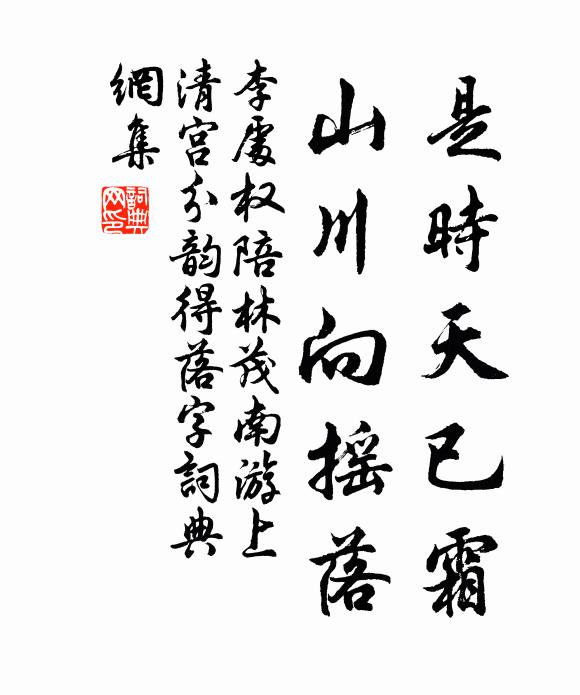 是時天已霜
山川向摇落
李處权陪林茂南游上
清宫分韵得落字詞典
網集
詞典網印